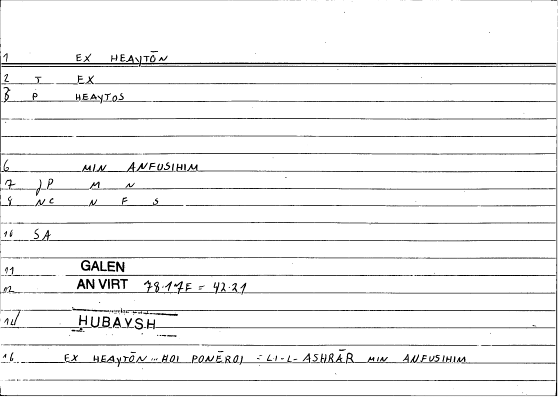 1 EX HEAYTŌN
2 T EX
3 P HEAYTOS
6 MIN ANFUSIHIM
7 JP M N
8 NC N F S
10 SA
11 GALEN
12 AN VIRT 78.17F = 42.21
14 HUBAYSH
16 EX HEAYTŌN .. HOI PONĒROI = LI-L-ASHRĀR MIN ANFUSIHIM